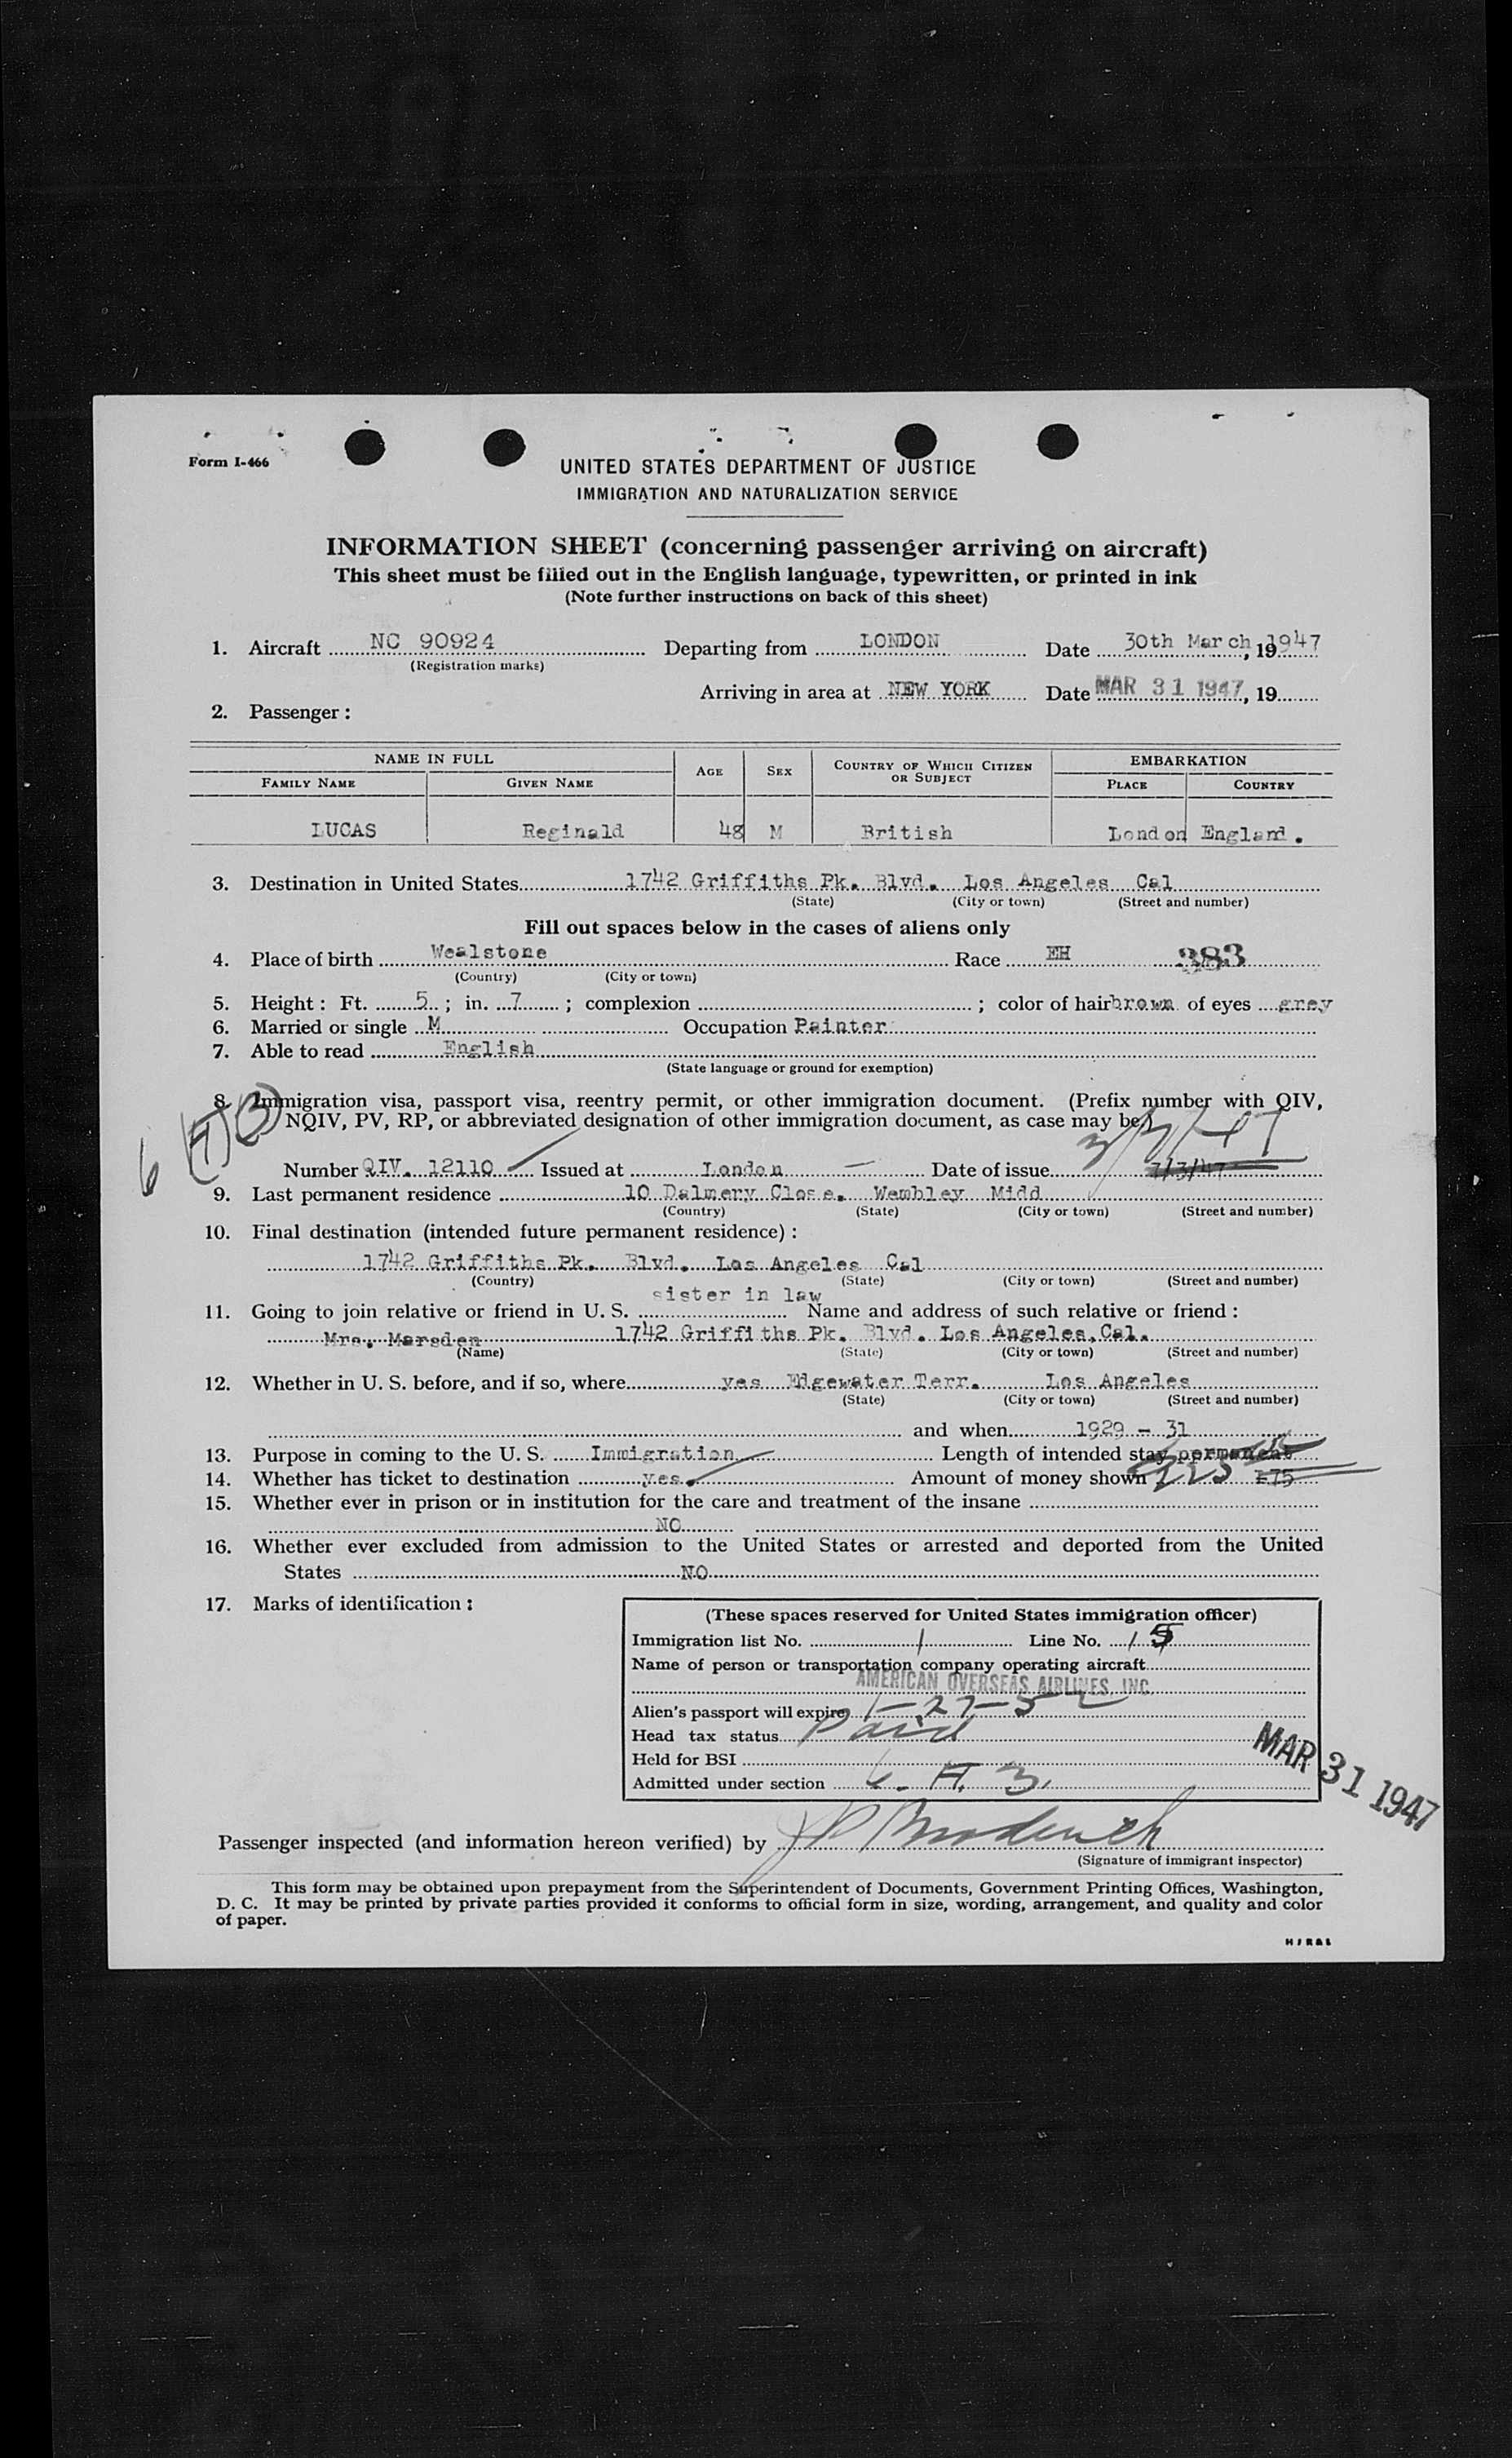 Form I-466
UNITED STATES DEPARTMENT OF JUSTICE
IMMIGRATION AND NATURALIZATION SERVICE
INFORMATION SHEET (concerning passenger arriving on aircraft)
This sheet must be filled out in the English language, typewritten, or printed in ink
(Note further instructions on back of this sheet)
1. Aircraft NC 90924 Departing from LONDON Date 30th March, 19 1947
(Registration marks)
Arriving in area at NEW YORK Date MAR 31 1947, 19
2. Passenger:
NAME IN FULL AGE SEX COUNTRY OF WHICH CITIZEN OR SUBJECT EMBARKATION
FAMILY NAME GIVEN NAME PLACE COUNTRY
LUCAS Reginald 48 M British London England.
3. Destination in United States 1742 Griffiths Pk. Blvd. Los Angeles Cal
(State) (City or town) (Street and number)
Fill out spaces below in the cases of aliens only
4. Place of birth Wealstone Race EH 383
(Country) (City or town)
5. Height: Ft. 5; in. 7; complexion ; color of hair brown of eyes grey
6. Married or single M Occupation Painter
7. Able to read English
(State language or ground for exemption)
8. Immigration visa, passport visa, reentry permit, or other immigration document. (Prefix number with QIV,
NQIV, PV, RP, or abbreviated designation of other immigration document, as case may be.)
6 (A) (3)
3/7/47
Number QIV. 12110 Issued at London Date of issue 7/3/47
9. Last permanent residence 10 Dalmery Close. Wembley Midd
(Country) (State) (City or town) (Street and number)
10. Final destination (intended future permanent residence):
1742 Griffiths Pk. Blvd. Los Angeles Cal
(Country) (State) (City or town) (Street and number)
11. Going to join relative or friend in U. S. sister in law Name and address of such relative or friend:
Mrs. Marsden 1742 Griffiths Pk. Blvd. Los Angeles, Cal.
(Name) (State) (City or town) (Street and number)
12. Whether in U. S. before, and if so, where yes Edgewater Terr. Los Angeles
(State) (City or town) (Street and number)
and when 1929 - 31
13. Purpose in coming to the U. S. Immigration Length of intended stay permanent
14. Whether has ticket to destination yes. Amount of money shown 225 £75
15. Whether ever in prison or in institution for the care and treatment of the insane
NO
16. Whether ever excluded from admission to the United States or arrested and deported from the United
States NO
17. Marks of identification:
(These spaces reserved for United States immigration officer)
Immigration list No. 1 Line No. 15
Name of person or transportation company operating aircraft
AMERICAN OVERSEAS AIRLINES, INC.
Alien's passport will expire 1-27-52
Head tax status Paid
Held for BSI
Admitted under section 6. A. 3.
MAR 31 1947
Passenger inspected (and information hereon verified) by
(Signature of immigrant inspector)
This form may be obtained upon prepayment from the Superintendent of Documents, Government Printing Offices, Washington,
D. C. It may be printed by private parties provided it conforms to official form in size, wording, arrangement, and quality and color
of paper.